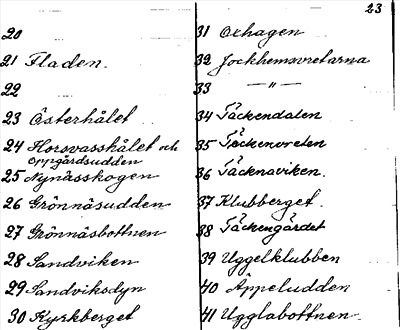 23
20
21 Fladen.
22
23 Österhålet
24 Horsvasshålet och
Oppgårdsudden
25 Nynässkogen
26 Grönnäsudden
27 Grönnäsbottnen
28 Sandviken
29 Sandviksdyn
30 Kyrkberget
31 Oxhagen
32 Jockhemsvretarna
33 — " —
34 Täckendalen
35 Täckenvreten
36 Täcknaviken.
37 Klubberget.
38 Täckengärdet
39 Uggelklubben
40 Äppeludden
41 Ugglabottnen.